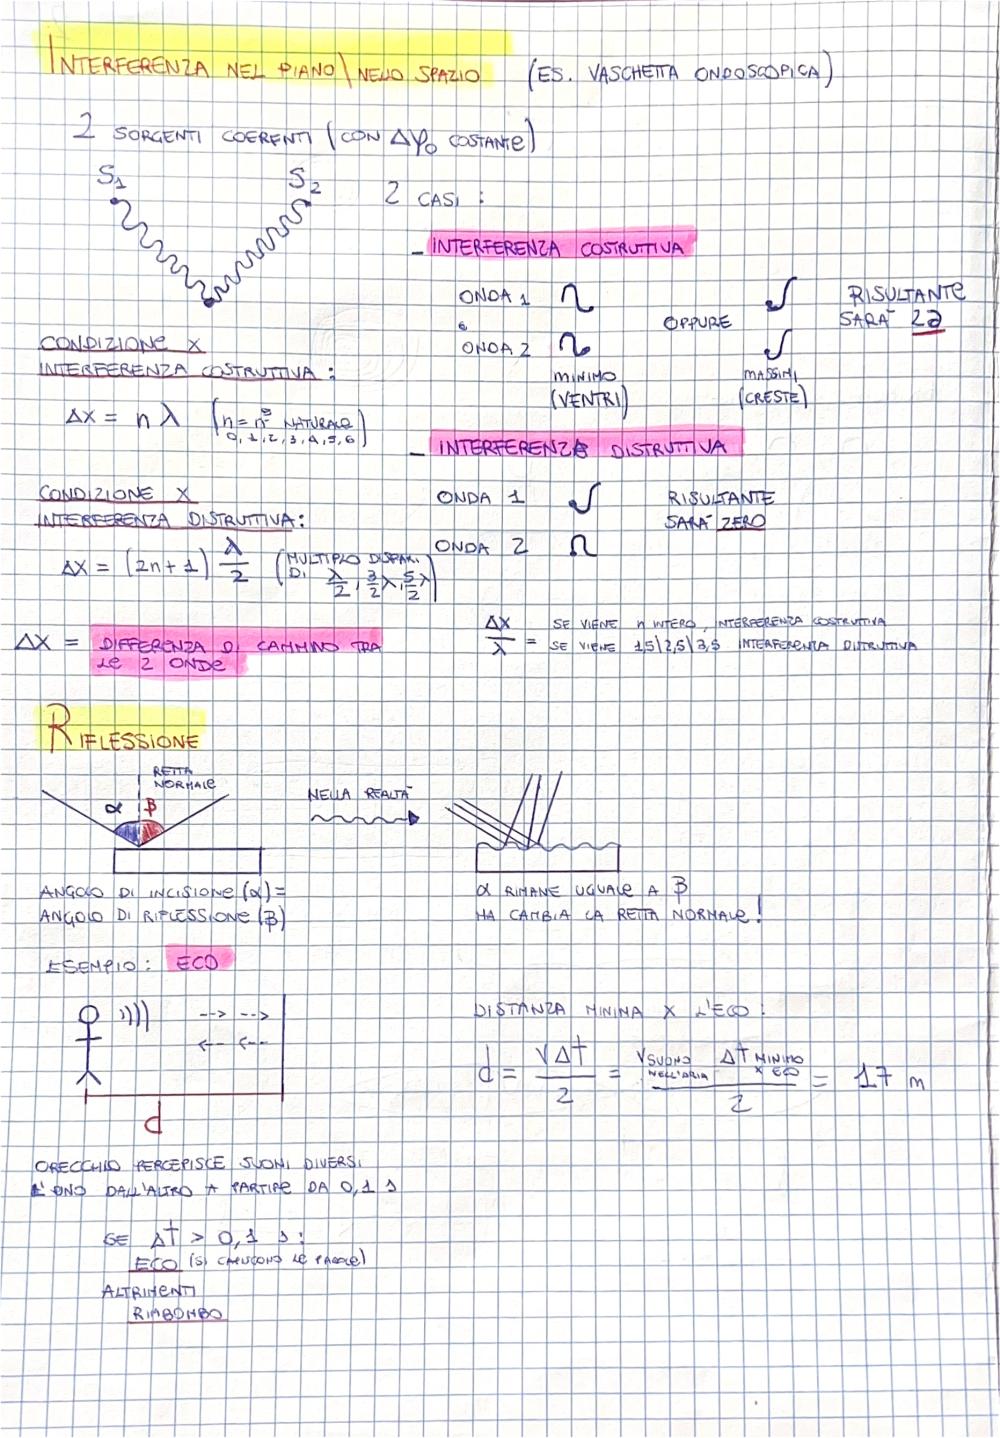 INTERFERENZA NEL PIANO\NELLO SPAZIO (ES. VASCHETTA ONDOSCOPICA)
2 SORGENTI COERENTI (CON Δφ₀ COSTANTE)
S₁ S₂
2 CASI:
- INTERFERENZA COSTRUTTIVA
ONDA 1
e
ONDA 2
MINIMO
(VENTRI)
OPPURE
MASSIMI
(CRESTE)
RISULTANTE
SARA' 2a
CONDIZIONE X
INTERFERENZA COSTRUTTIVA:
ΔX = nλ (n = n° NATURALE
0,1,2,3,4,5,6)
- INTERFERENZA DISTRUTTIVA
ONDA 1
ONDA 2
RISULTANTE
SARA' ZERO
CONDIZIONE X
INTERFERENZA DISTRUTTIVA:
ΔX = (2n+1) λ/2 (MULTIPLO DISPARI
DI λ/2, 3/2 λ, 5/2 λ)
ΔX = DIFFERENZA DI CAMMINO TRA
LE 2 ONDE
ΔX/λ = SE VIENE n INTERO, INTERFERENZA COSTRUTTIVA
SE VIENE 1,5\2,5\3,5 INTERFERENZA DISTRUTTIVA
RIFLESSIONE
RETTA
NORMALE
α β
NELLA REALTÀ
ANGOLO DI INCISIONE (α) =
ANGOLO DI RIFLESSIONE (β)
α RIMANE UGUALE A β
MA CAMBIA LA RETTA NORMALE!
ESEMPIO: ECO
d
DISTANZA MINIMA X L'ECO:
d = VΔt/2 = V SUONO NELL'ARIA Δt MINIMO X ECO/2 = 17 m
ORECCHIO PERCEPISCE SUONI DIVERSI
L'UNO DALL'ALTRO A PARTIRE DA 0,1 s
SE Δt > 0,1 s:
ECO (SI CAPISCONO LE PAROLE)
ALTRIMENTI
RIMBOMBO